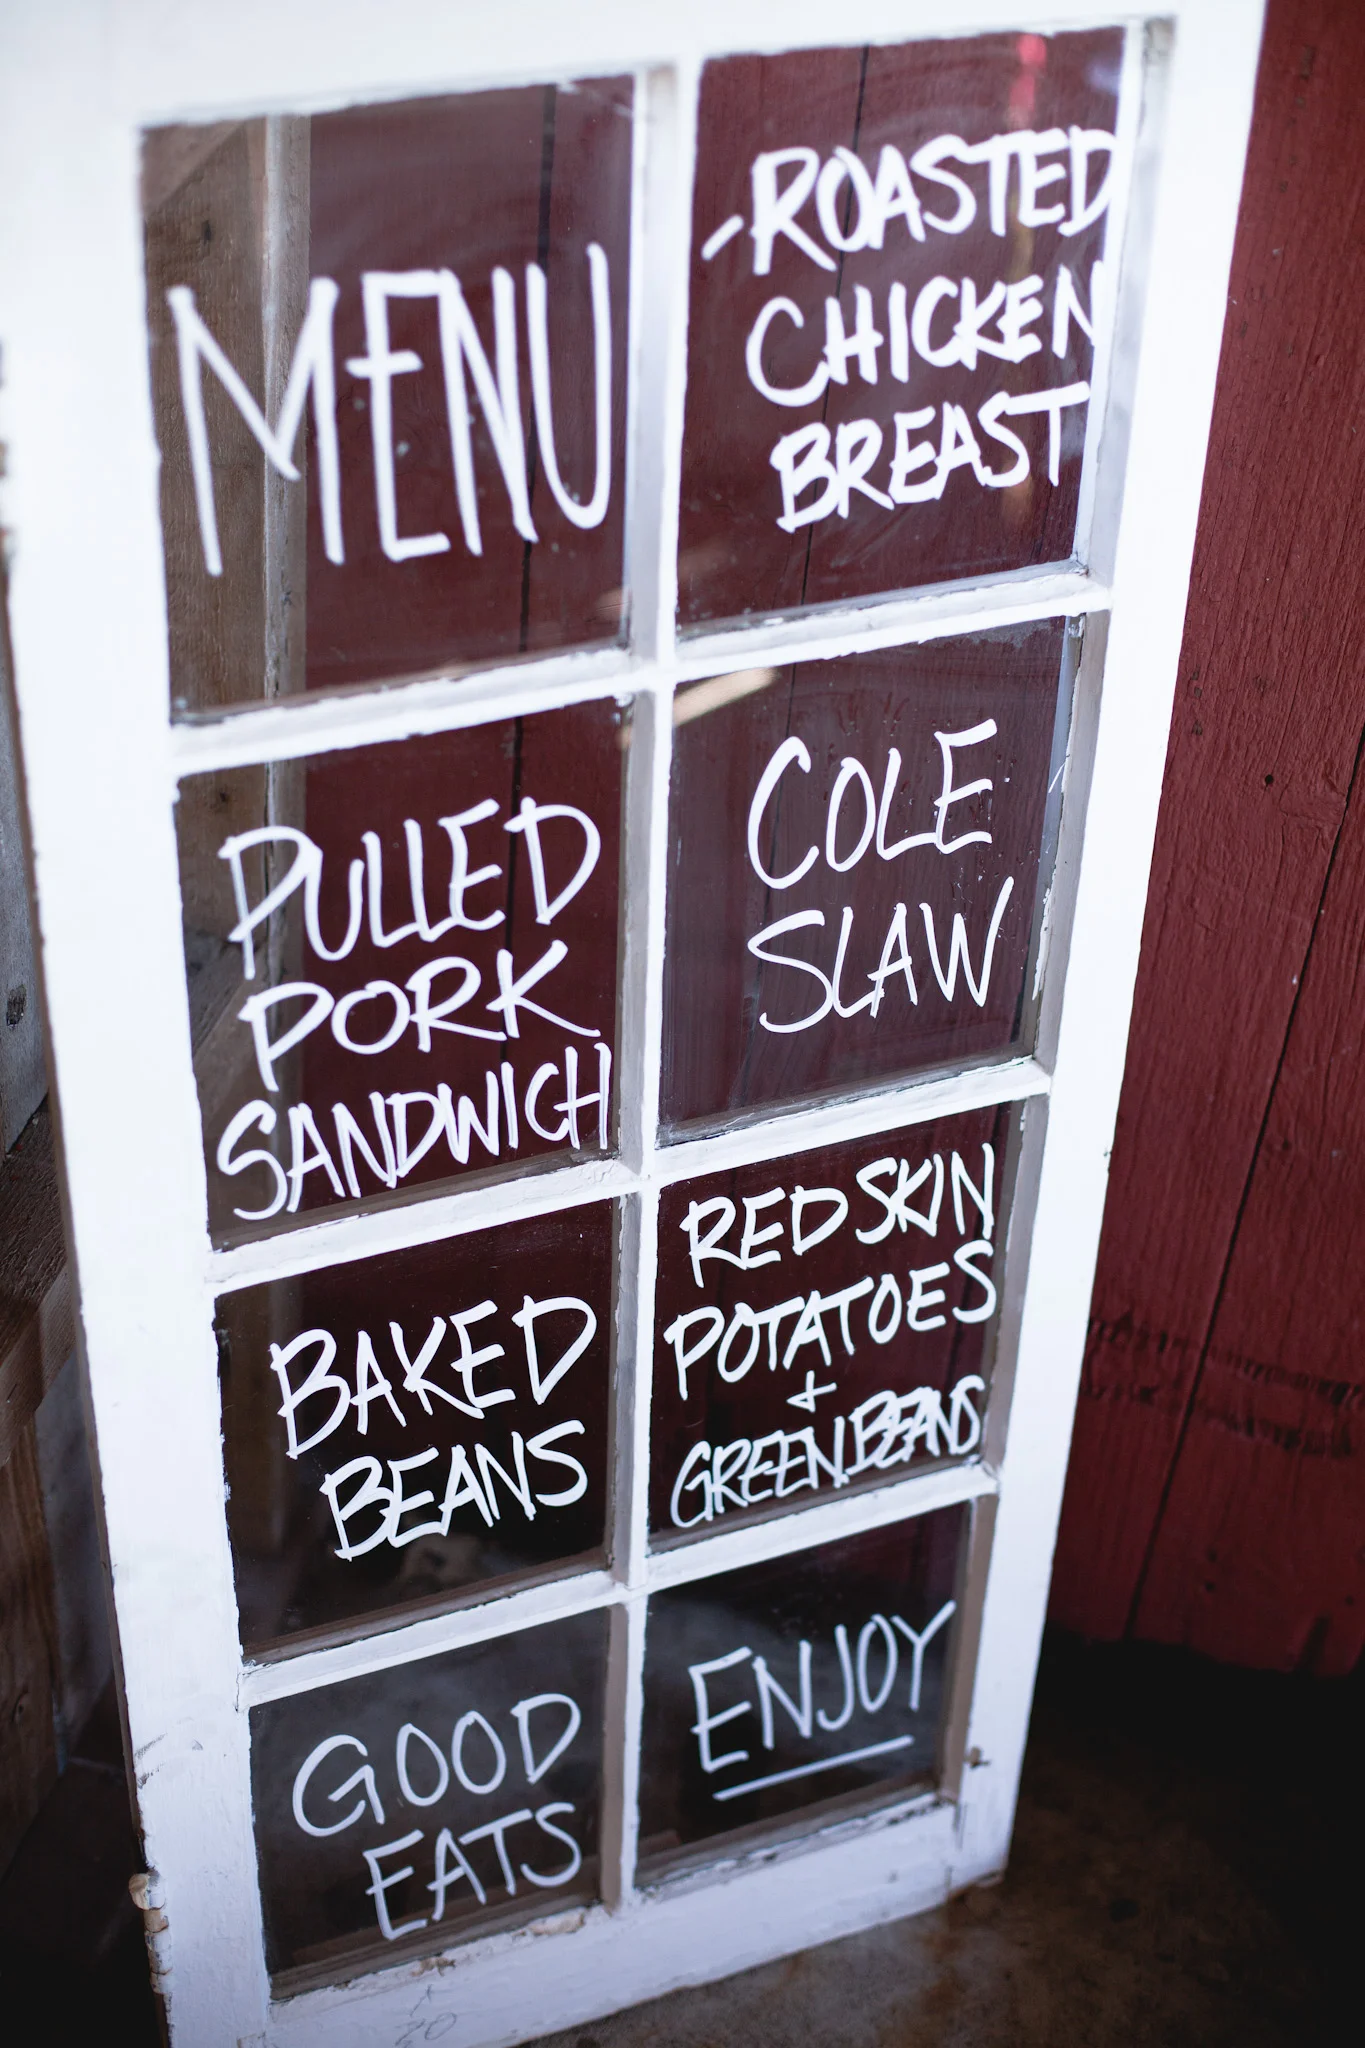 MENU
-ROASTED
CHICKEN
BREAST
PULLED
PORK
SANDWICH
COLE
SLAW
BAKED
BEANS
RED SKIN
POTATOES
+
GREEN BEANS
GOOD
EATS
ENJOY
20